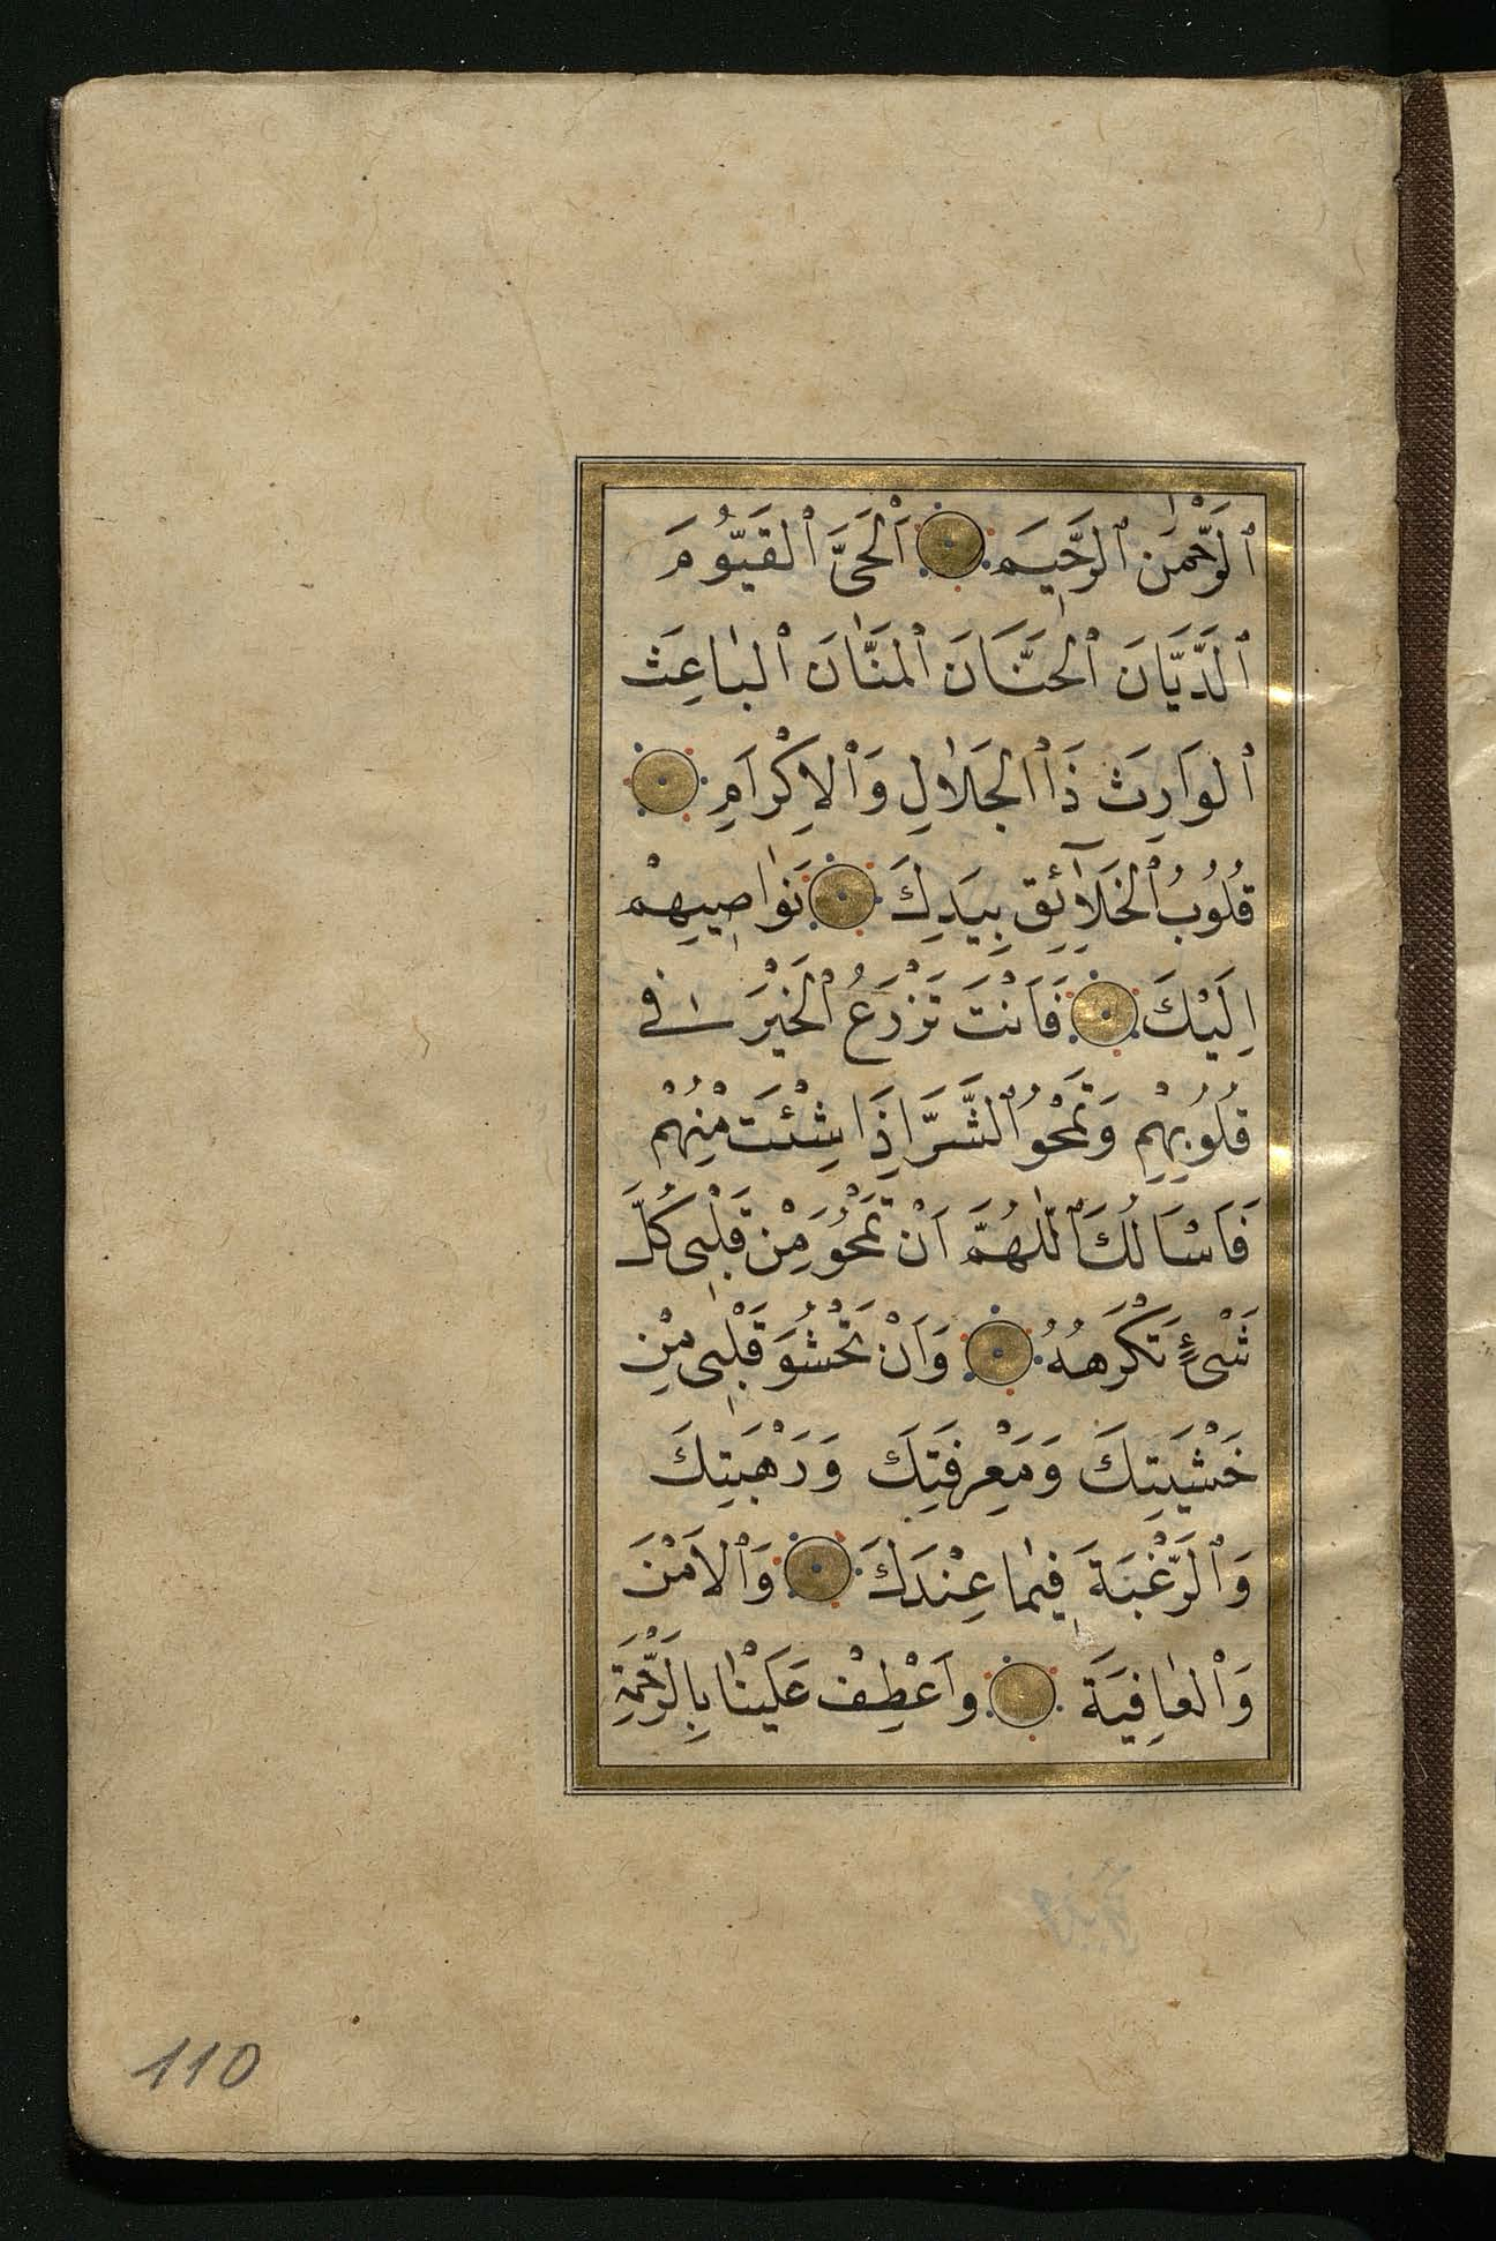 ٱلرَّحْمٰنَ ٱلرَّحِيمَ ٱلْحَيَّ ٱلْقَيُّومَ
ٱلدَّيَّانَ ٱلْحَنَّانَ ٱلْمَنَّانَ ٱلْبَاعِثَ
ٱلْوَارِثَ ذَا ٱلْجَلَالِ وَٱلْاِكْرَامِ
قُلُوبُ ٱلْخَلَآئِقِ بِيَدِكَ نَوَاصِيهِمْ
اِلَيْكَ فَاَنْتَ تَزْرَعُ ٱلْخَيْرَ فِي
قُلُوبِهِمْ وَتَمْحُو ٱلشَّرَّ اِذَا شِئْتَ مِنْهُمْ
فَاَسْاَلُكَ ٱللّٰهُمَّ اَنْ تَمْحُوَ مِنْ قَلْبِي كُلَّ
شَيْءٍ تَكْرَهُهُ وَاَنْ تَحْشُوَ قَلْبِي مِنْ
خَشْيَتِكَ وَمَعْرِفَتِكَ وَرَهْبَتِكَ
وَٱلرَّغْبَةَ فِيمَا عِنْدَكَ وَٱلْاَمْنَ
وَٱلْعَافِيَةَ وَاَعْطِفْ عَلَيْنَا بِالرَّحْمَةِ
110